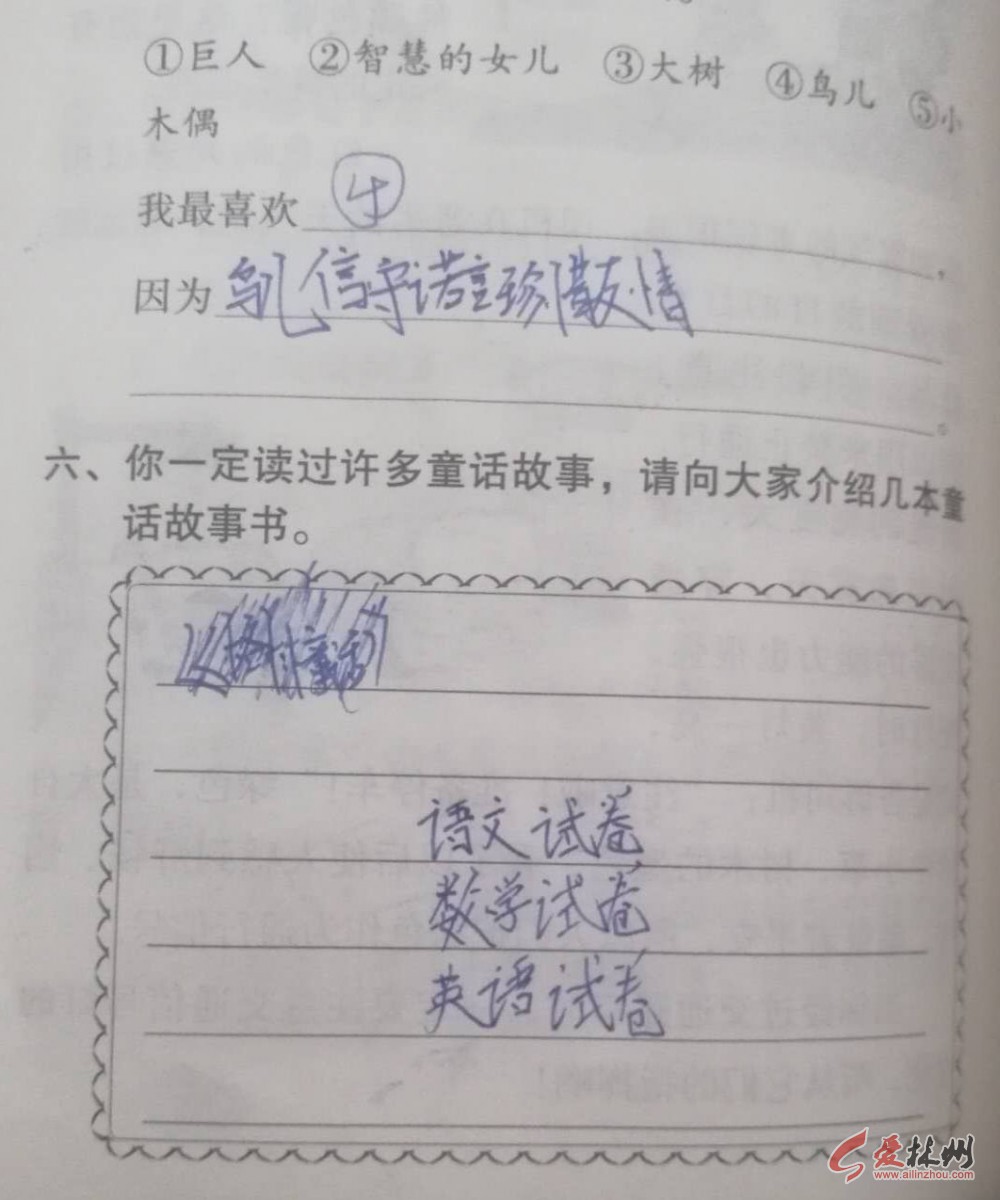 ①巨人 ②智慧的女儿 ③大树 ④鸟儿 ⑤小
木偶
我最喜欢 ④ ，
因为 鸟儿信守诺言珍惜友情
。
六、你一定读过许多童话故事，请向大家介绍几本童
话故事书。
语文试卷
数学试卷
英语试卷
爱林州
www.ailinzhou.com